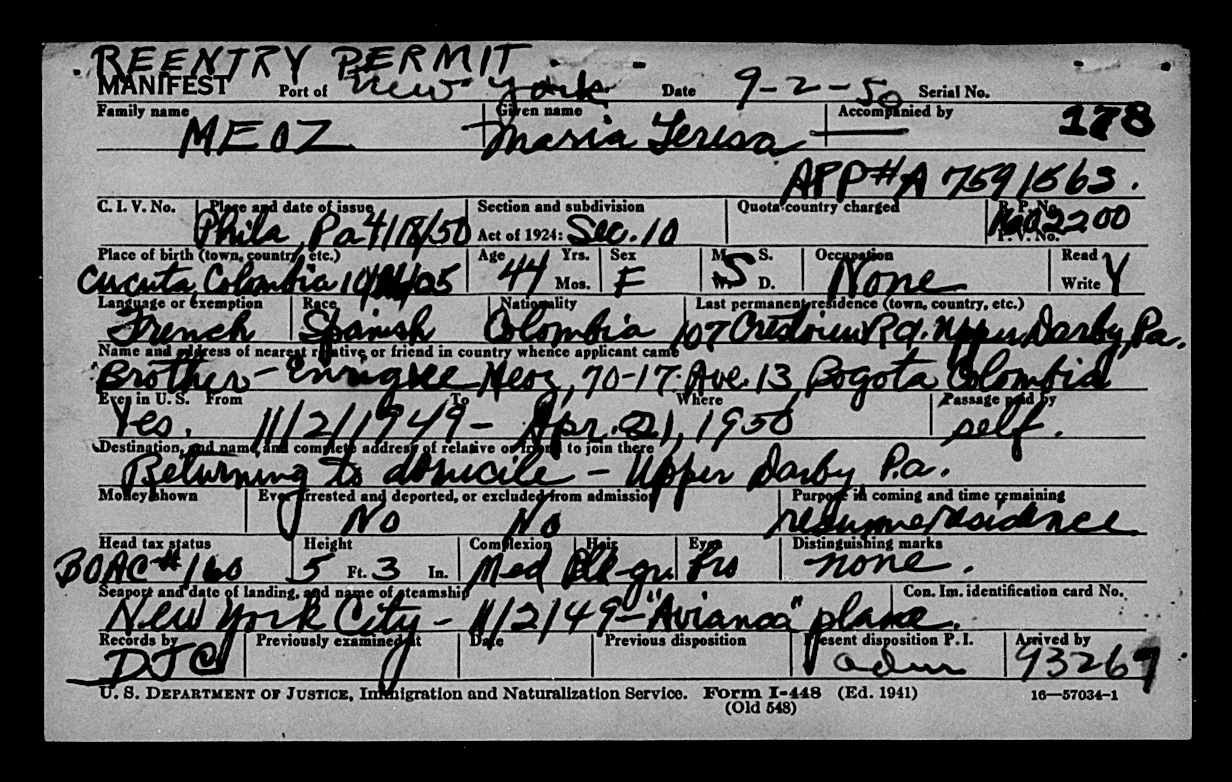 REENTRY PERMIT
MANIFEST Port of New York Date 9-2-50 Serial No.
Family name Given name Accompanied by
MEOZ Maria Teresa — 178
APP#A 7591563.
C. I. V. No. Place and date of issue Section and subdivision Quota country charged R. P. No.
Phila, Pa 4/18/50 Act of 1924: Sec. 10 2200 P. V. No.
Place of birth (town, country, etc.) Age Yrs. Sex M. S. Occupation Read
Cucuta Colombia 44 Mos. F S W. D. None Write Y
Language or exemption Race Nationality Last permanent residence (town, country, etc.)
French Spanish Colombia 107 Crestview Rd. Upper Darby, Pa.
Name and address of nearest relative or friend in country whence applicant came
Brother - Enrique Meoz, 70-17 Ave. 13, Bogota Colombia
Ever in U. S. From To Where Passage paid by
Yes. 11/2/1949 - Apr. 21, 1950 self.
Destination, and name, and complete address of relative or friend to join there
Returning to domicile - Upper Darby Pa.
Money shown Ever arrested and deported, or excluded from admission Purpose in coming and time remaining
No No resume residence
Head tax status Height Complexion Hair Eyes Distinguishing marks
BOAC # 160 5 Ft. 3 In. Med Blk-gr. Bro none.
Seaport and date of landing, and name of steamship Con. Im. identification card No.
New York City - 11/2/49 - "Avianca" plane.
Records by Previously examined at Date Previous disposition Present disposition P. I. Arrived by
DJC adm 93267
U. S. DEPARTMENT OF JUSTICE, Immigration and Naturalization Service. Form I-448 (Ed. 1941) 16—57034-1
(Old 548)